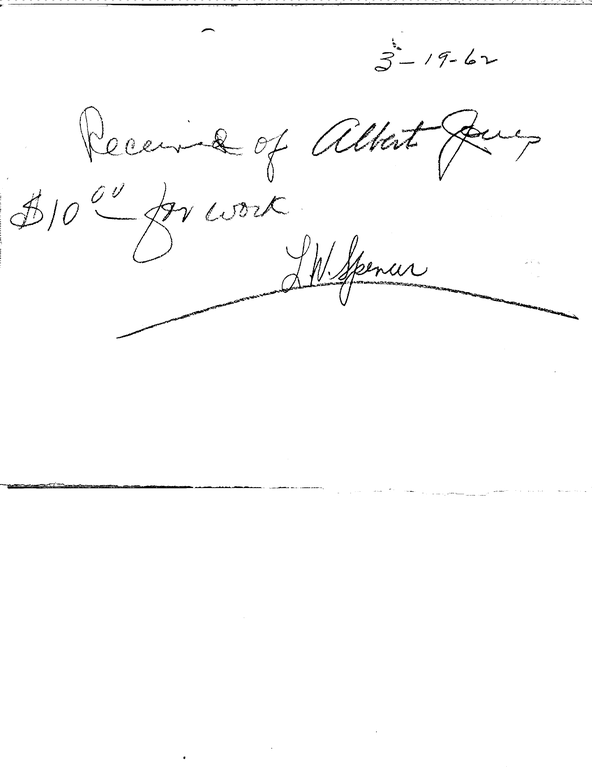 3-19-62
Received of Albert Jones
$10.00 for work
L.W. Spencer